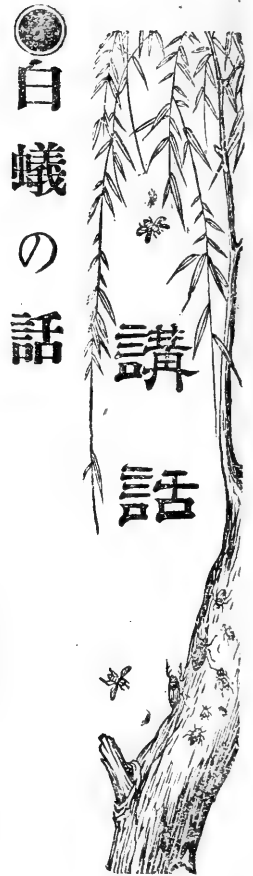 講話
◉白蟻の話